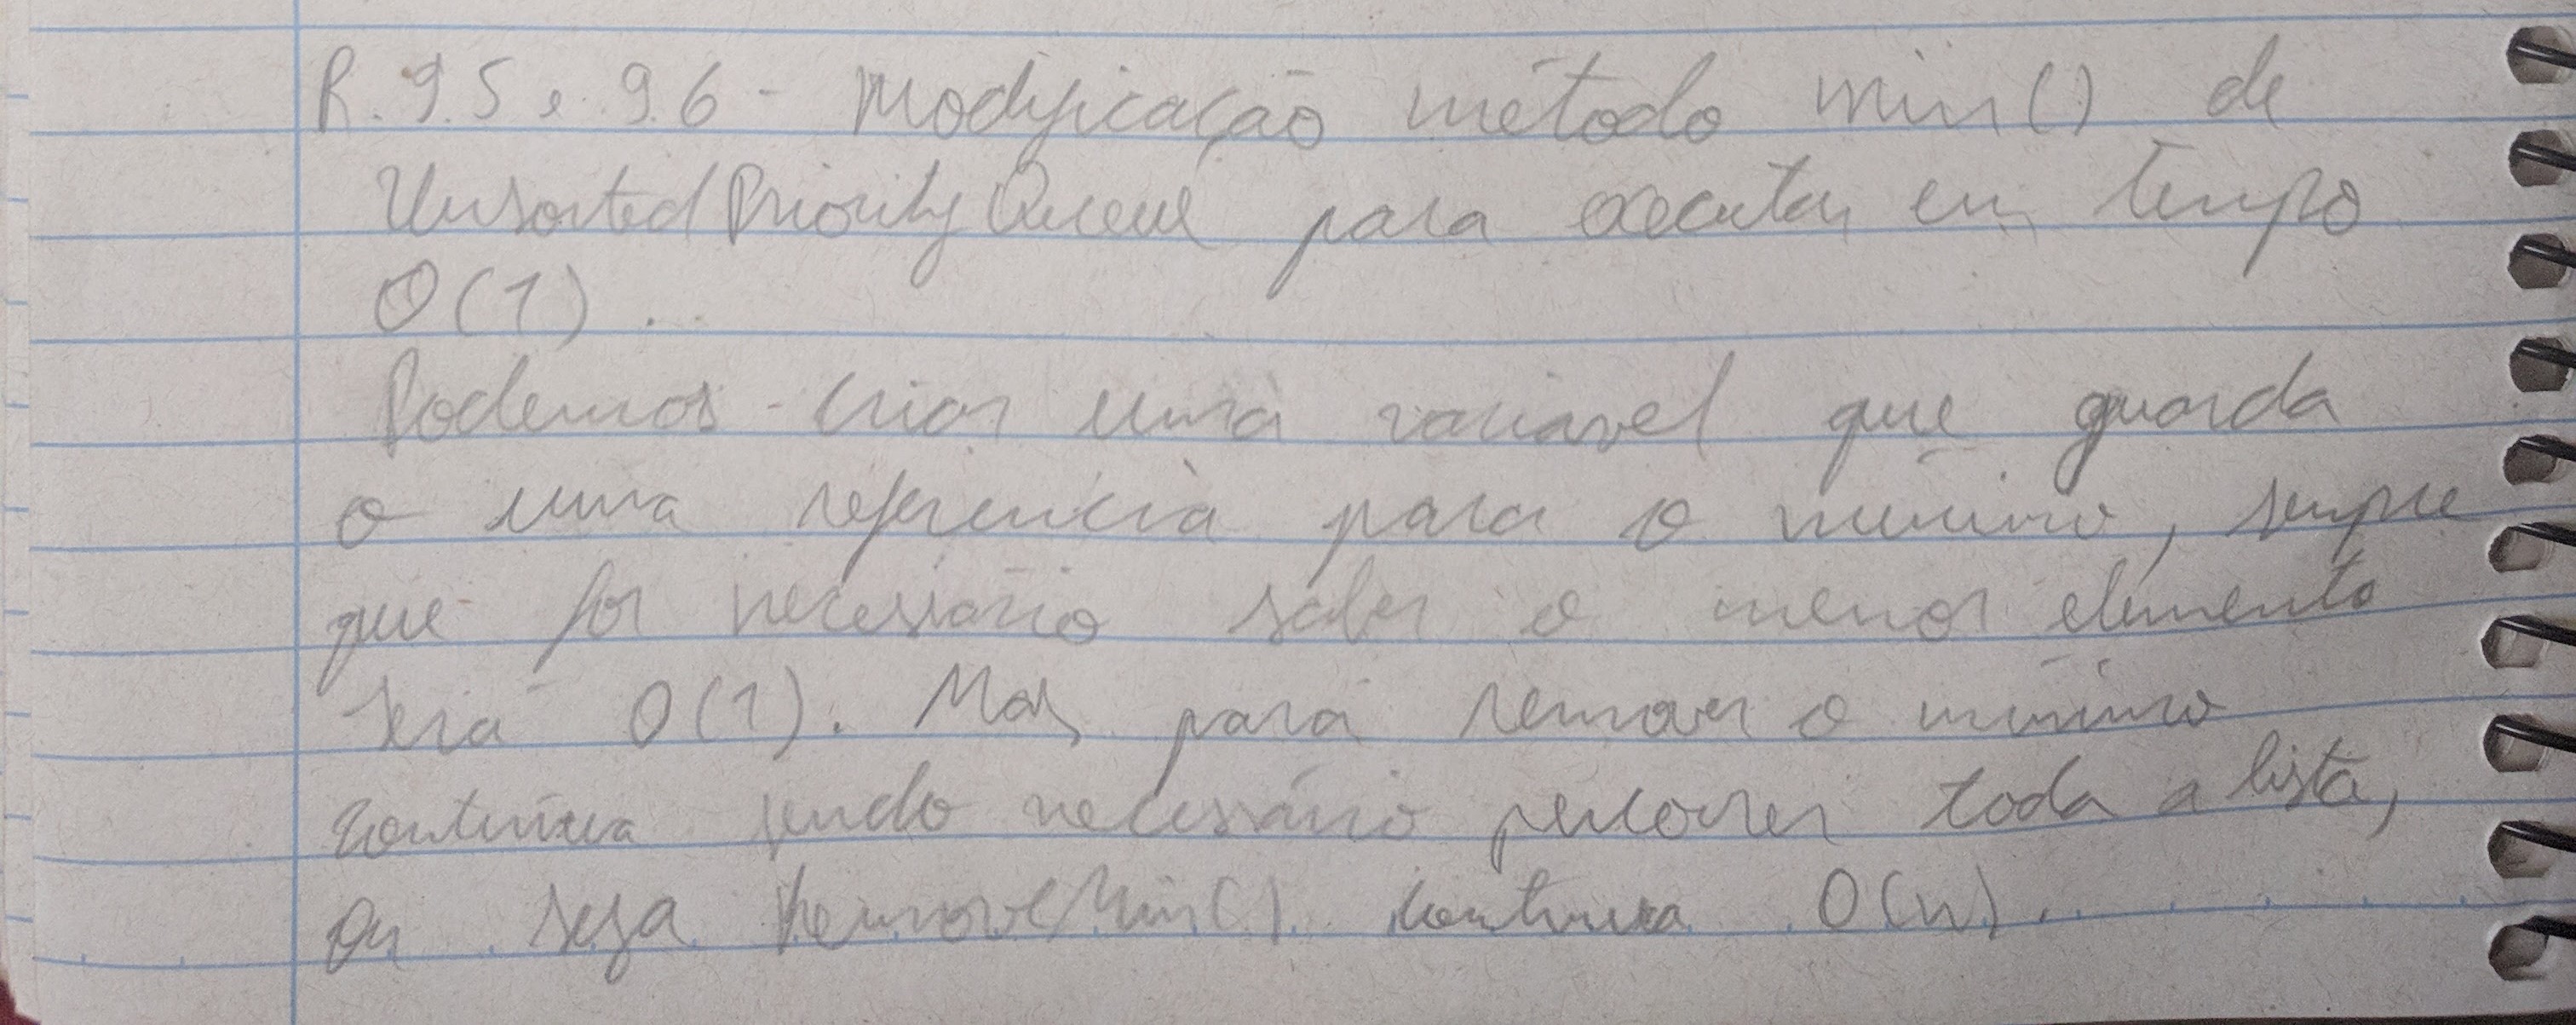 R. 9.5 e 9.6 - Modificação método min() de
UnsortedPriorityQueue para executar em tempo
O(1).
Podemos criar uma variavel que guarda
o uma referencia para o minimo, sempre
que for necessário saber o menor elemento
será O(1). Mas para remover o mínimo
continua sendo necessário percorrer toda a lista,
ou seja RemoveMin() continua O(n).